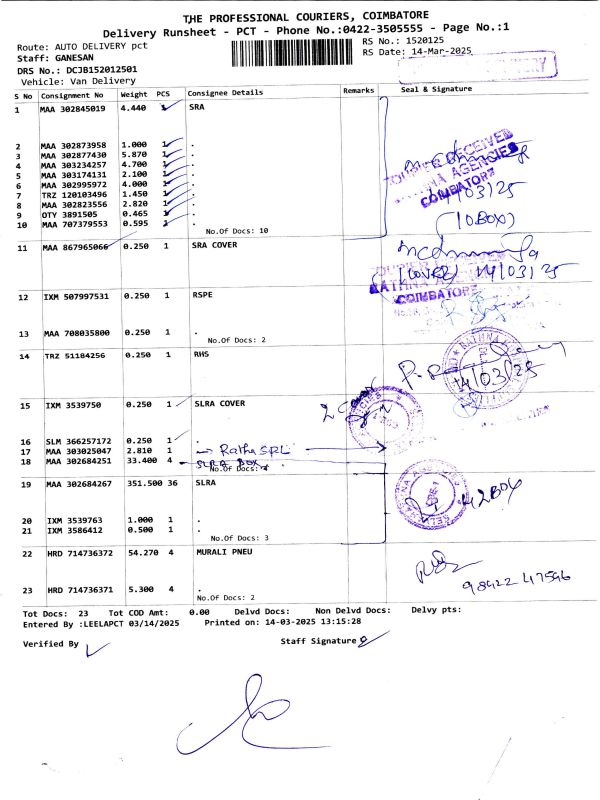 THE PROFESSIONAL COURIERS, COIMBATORE
Delivery Runsheet - PCT - Phone No.:0422-3505555 - Page No.:1
Route: AUTO DELIVERY pct RS No.: 1520125
Staff: GANESAN RS Date: 14-Mar-2025
DRS No.: DCJB152012501
Vehicle: Van Delivery
S No Consignment No Weight PCS Consignee Details Remarks Seal & Signature
1 MAA 302845019 4.440 1 SRA
2 MAA 302873958 1.000 1 .
3 MAA 302877430 5.870 1 .
4 MAA 303234257 4.700 1 .
5 MAA 303174131 2.100 1 .
6 MAA 302995972 4.000 1 .
7 TRZ 120103496 1.450 1 .
8 MAA 302823556 2.820 1 .
9 OTY 3891505 0.465 1 .
10 MAA 707379553 0.595 1 .
No.Of Docs: 10
RECEIVED
AGENCIES
COIMBATORE
14/03/25
(10BOX)
11 MAA 867965066 0.250 1 SRA COVER
(COVER) 14/03/25
COIMBATORE
12 IXM 507997531 0.250 1 RSPE
13 MAA 708035800 0.250 1 .
No.Of Docs: 2
14 TRZ 51104256 0.250 1 RHS
14/03/25
15 IXM 3539750 0.250 1 SLRA COVER
16 SLM 366257172 0.250 1 .
17 MAA 303025047 2.810 1 Ratha SRL
18 MAA 302684251 33.400 4 SLRA BOX
No.Of Docs: 4
19 MAA 302684267 351.500 36 SLRA
42BOX
20 IXM 3539763 1.000 1 .
21 IXM 3586412 0.500 1 .
No.Of Docs: 3
22 HRD 714736372 54.270 4 MURALI PNEU
98422 47596
23 HRD 714736371 5.300 4 .
No.Of Docs: 2
Tot Docs: 23 Tot COD Amt: 0.00 Delvd Docs: Non Delvd Docs: Delvy pts:
Entered By :LEELAPCT 03/14/2025 Printed on: 14-03-2025 13:15:28
Verified By Staff Signature